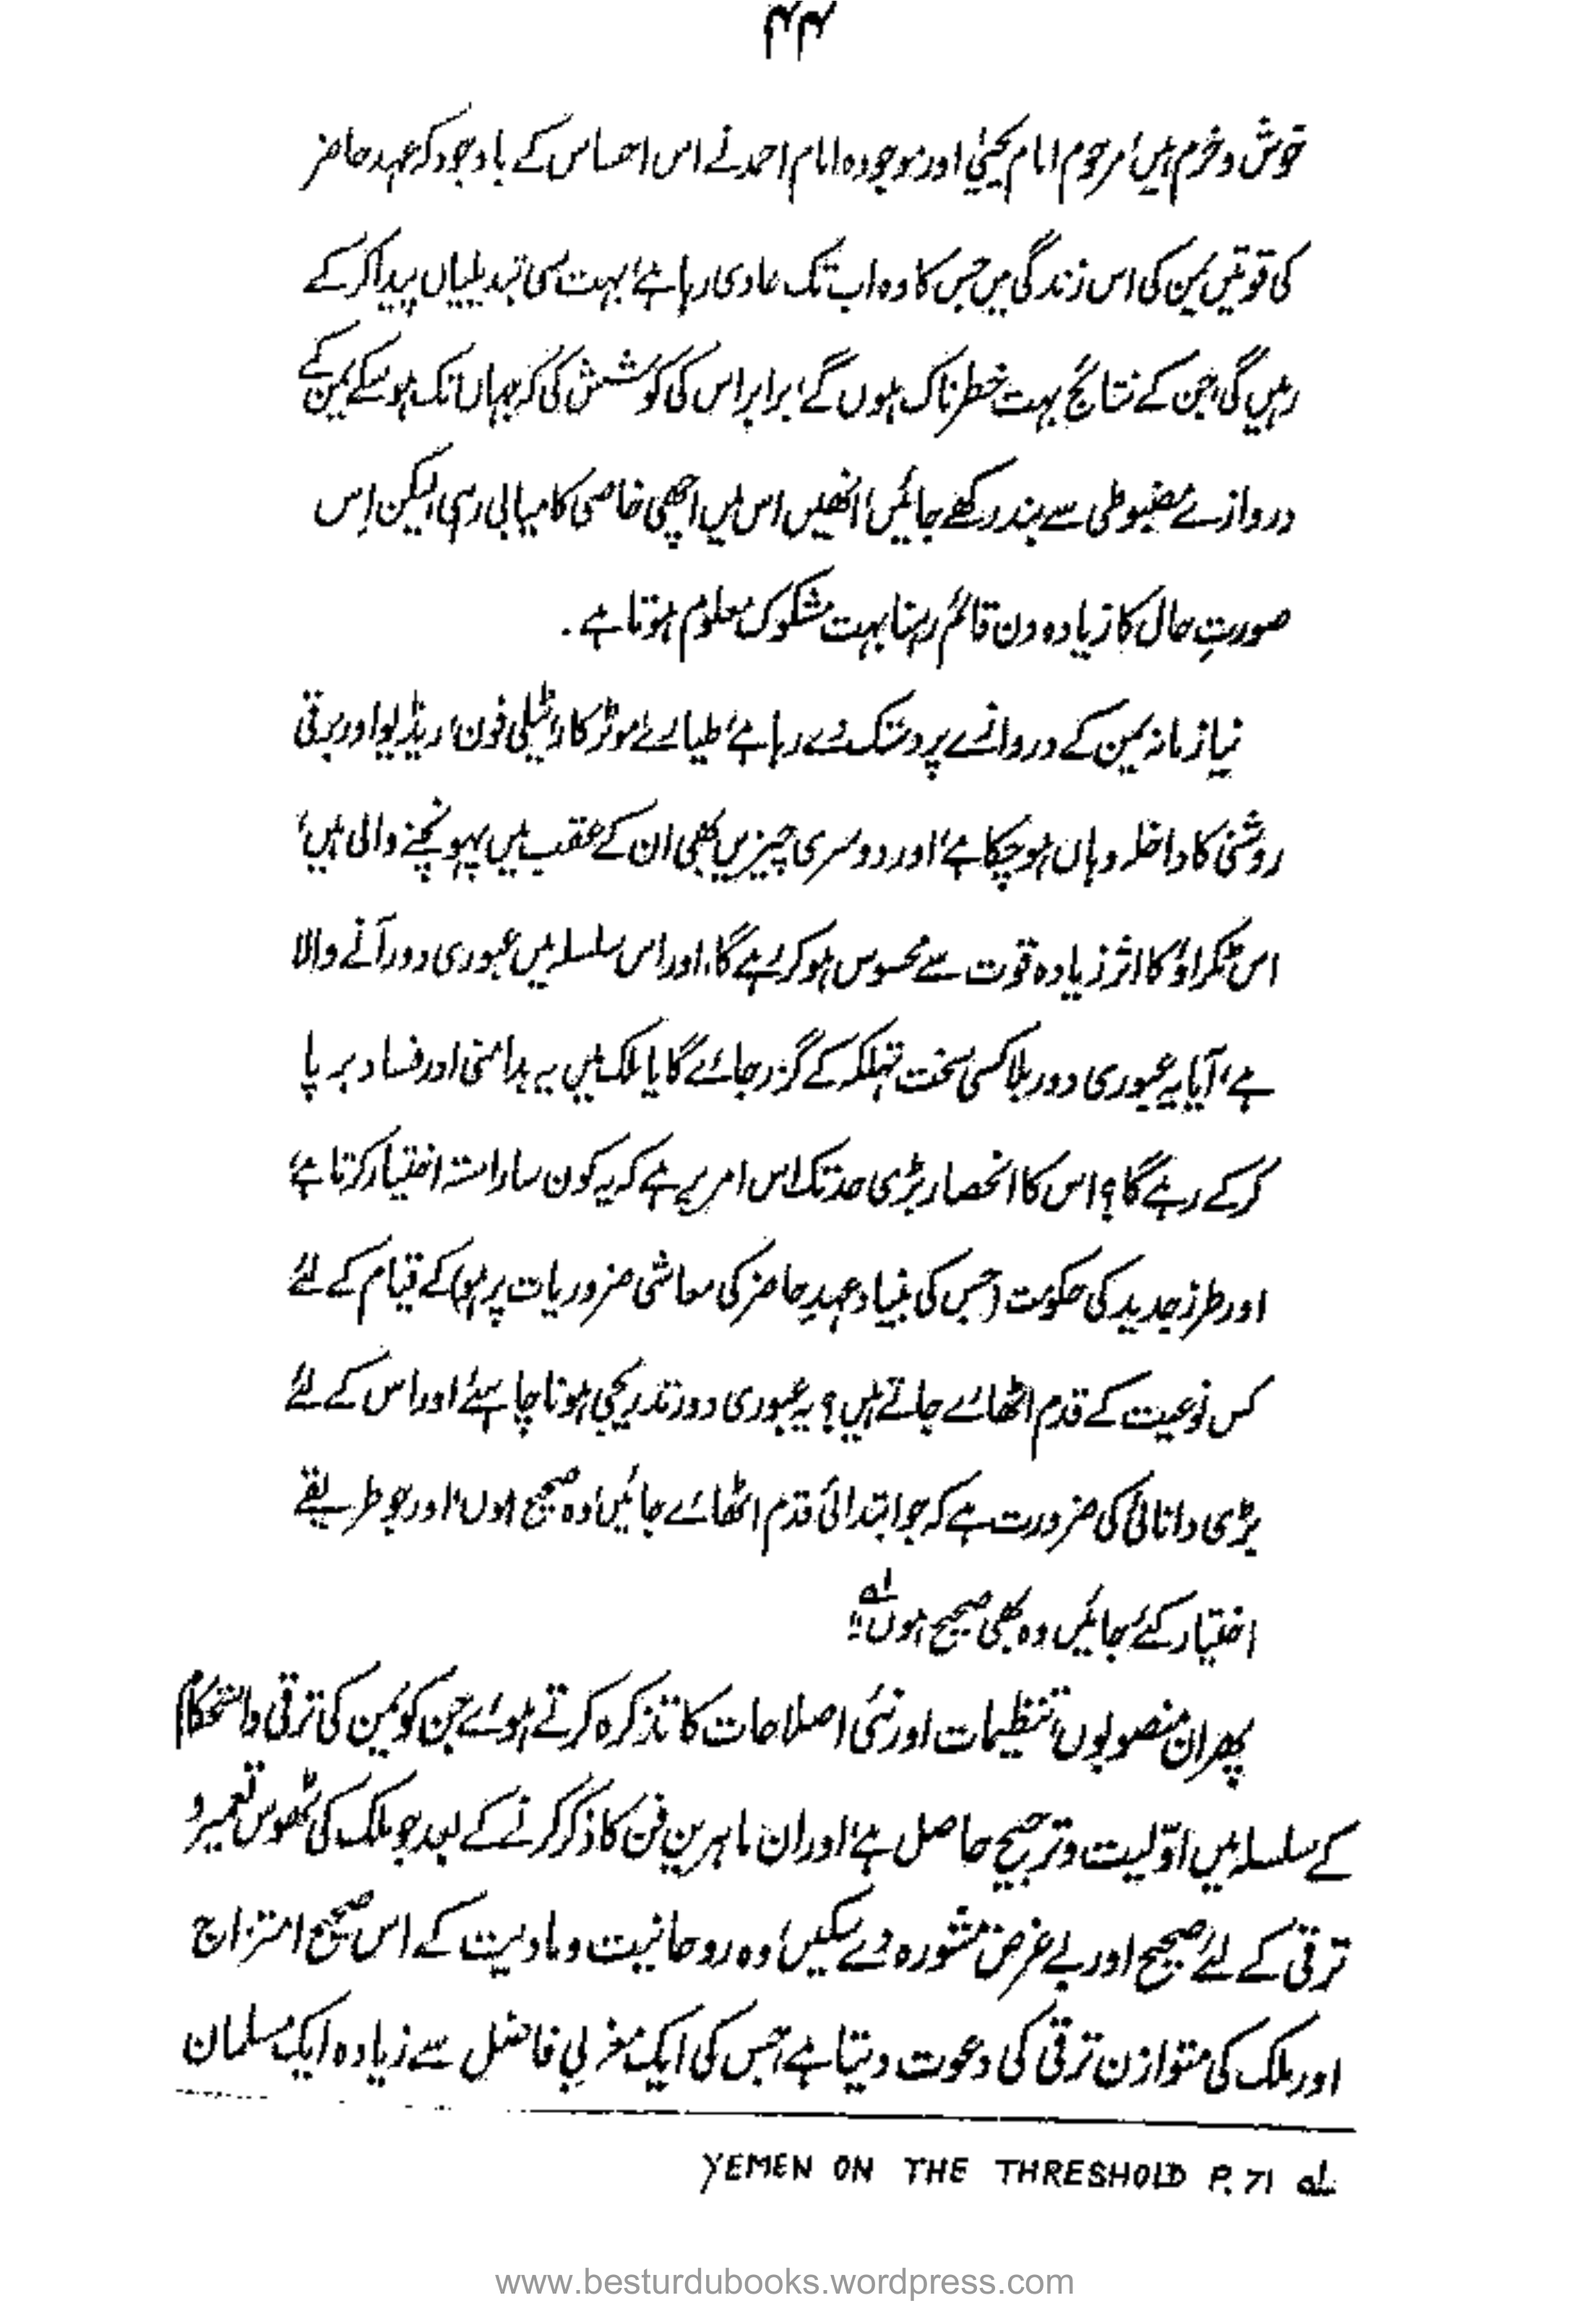 ۴۴
خوش و خرم ہیں، مرحوم امام یحییٰ اور موجودہ امام احمد نے اس احساس کے باوجود کہ عہد حاضر
کی قوتیں یمن کی اس زندگی میں جس کا وہ اب تک عادی رہا ہے، بہت سی تبدیلیاں پیدا کر کے
رہیں گی، جن کے نتائج بہت خطرناک ہوں گے، برابر اس کی کوشش کی کہ جہاں تک ہو سکے یمن کے
دروازے مضبوطی سے بند رکھے جائیں، انھیں اس میں اچھی خاصی کامیابی رہی، لیکن اِس
صورتِ حال کا زیادہ دن قائم رہنا بہت مشکوک معلوم ہوتا ہے۔
نیا زمانہ یمن کے دروازے پر دستک دے رہا ہے، طیارے، موٹر کار، ٹیلی فون، ریڈیو اور برقی
روشنی کا داخلہ وہاں ہو چکا ہے، اور دوسری چیزیں بھی ان کے عقب میں پہونچنے والی ہیں،
اس ٹکراؤ کا اثر زیادہ قوت سے محسوس ہو کر رہے گا، اور اس سلسلہ میں عبوری دور آنے والا
ہے، آیا یہ عبوری دور بلا کسی سخت تہلکہ کے گزر جائے گا یا ملک میں یہ بدامنی اور فساد برپا
کر کے رہے گا؟ اس کا انحصار بڑی حد تک اس امر پر ہے کہ یہ کون سا راستہ اختیار کرتا ہے،
اور طرز جدید کی حکومت (جس کی بنیاد عہدِ حاضر کی معاشی ضروریات پر ہو) کے قیام کے لئے
کس نوعیت کے قدم اٹھائے جاتے ہیں؟ یہ عبوری دور تدریجی ہونا چاہئے، اور اس کے لئے
بڑی دانائی کی ضرورت ہے کہ جو ابتدائی قدم اٹھائے جائیں، وہ صحیح ہوں، اور جو طریقے
اختیار کئے جائیں وہ بھی صحیح ہوں"؂۱
پھر ان منصوبوں، تنظیمات اور نئی اصلاحات کا تذکرہ کرتے ہوئے جن کو یمن کی ترقی و استحکام
کے سلسلہ میں اوّلیت و ترجیح حاصل ہے، اور ان ماہرین فن کا ذکر کرنے کے بعد جو ملک کی ٹھوس تعمیر و
ترقی کے لئے صحیح اور بے غرض مشورہ دے سکیں، وہ روحانیت و مادیت کے اس صحیح امتزاج
اور ملک کی متوازن ترقی کی دعوت دیتا ہے، جس کی ایک مغربی فاضل سے زیادہ ایک مسلمان
؂۱ YEMEN ON THE THRESHOLD P. 71
www.besturdubooks.wordpress.com